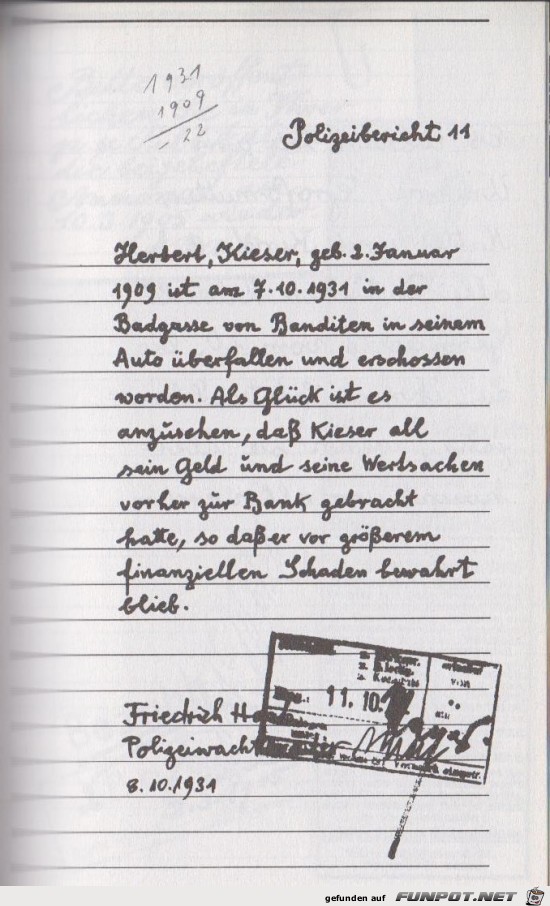 1931
1909
22
Polizeibericht 11
Herbert, Kieser, geb. 2. Januar
1909 ist am 7.10.1931 in der
Badgasse von Banditen in seinem
Auto überfallen und erschossen
worden. Als Glück ist es
anzusehen, daß Kieser all
sein Geld und seine Wertsachen
vorher zur Bank gebracht
hatte, so daß er vor größerem
finanziellen Schaden bewahrt
blieb.
11. 10.
Friedrich
8.10.1931
gefunden auf FUNPOT.NET